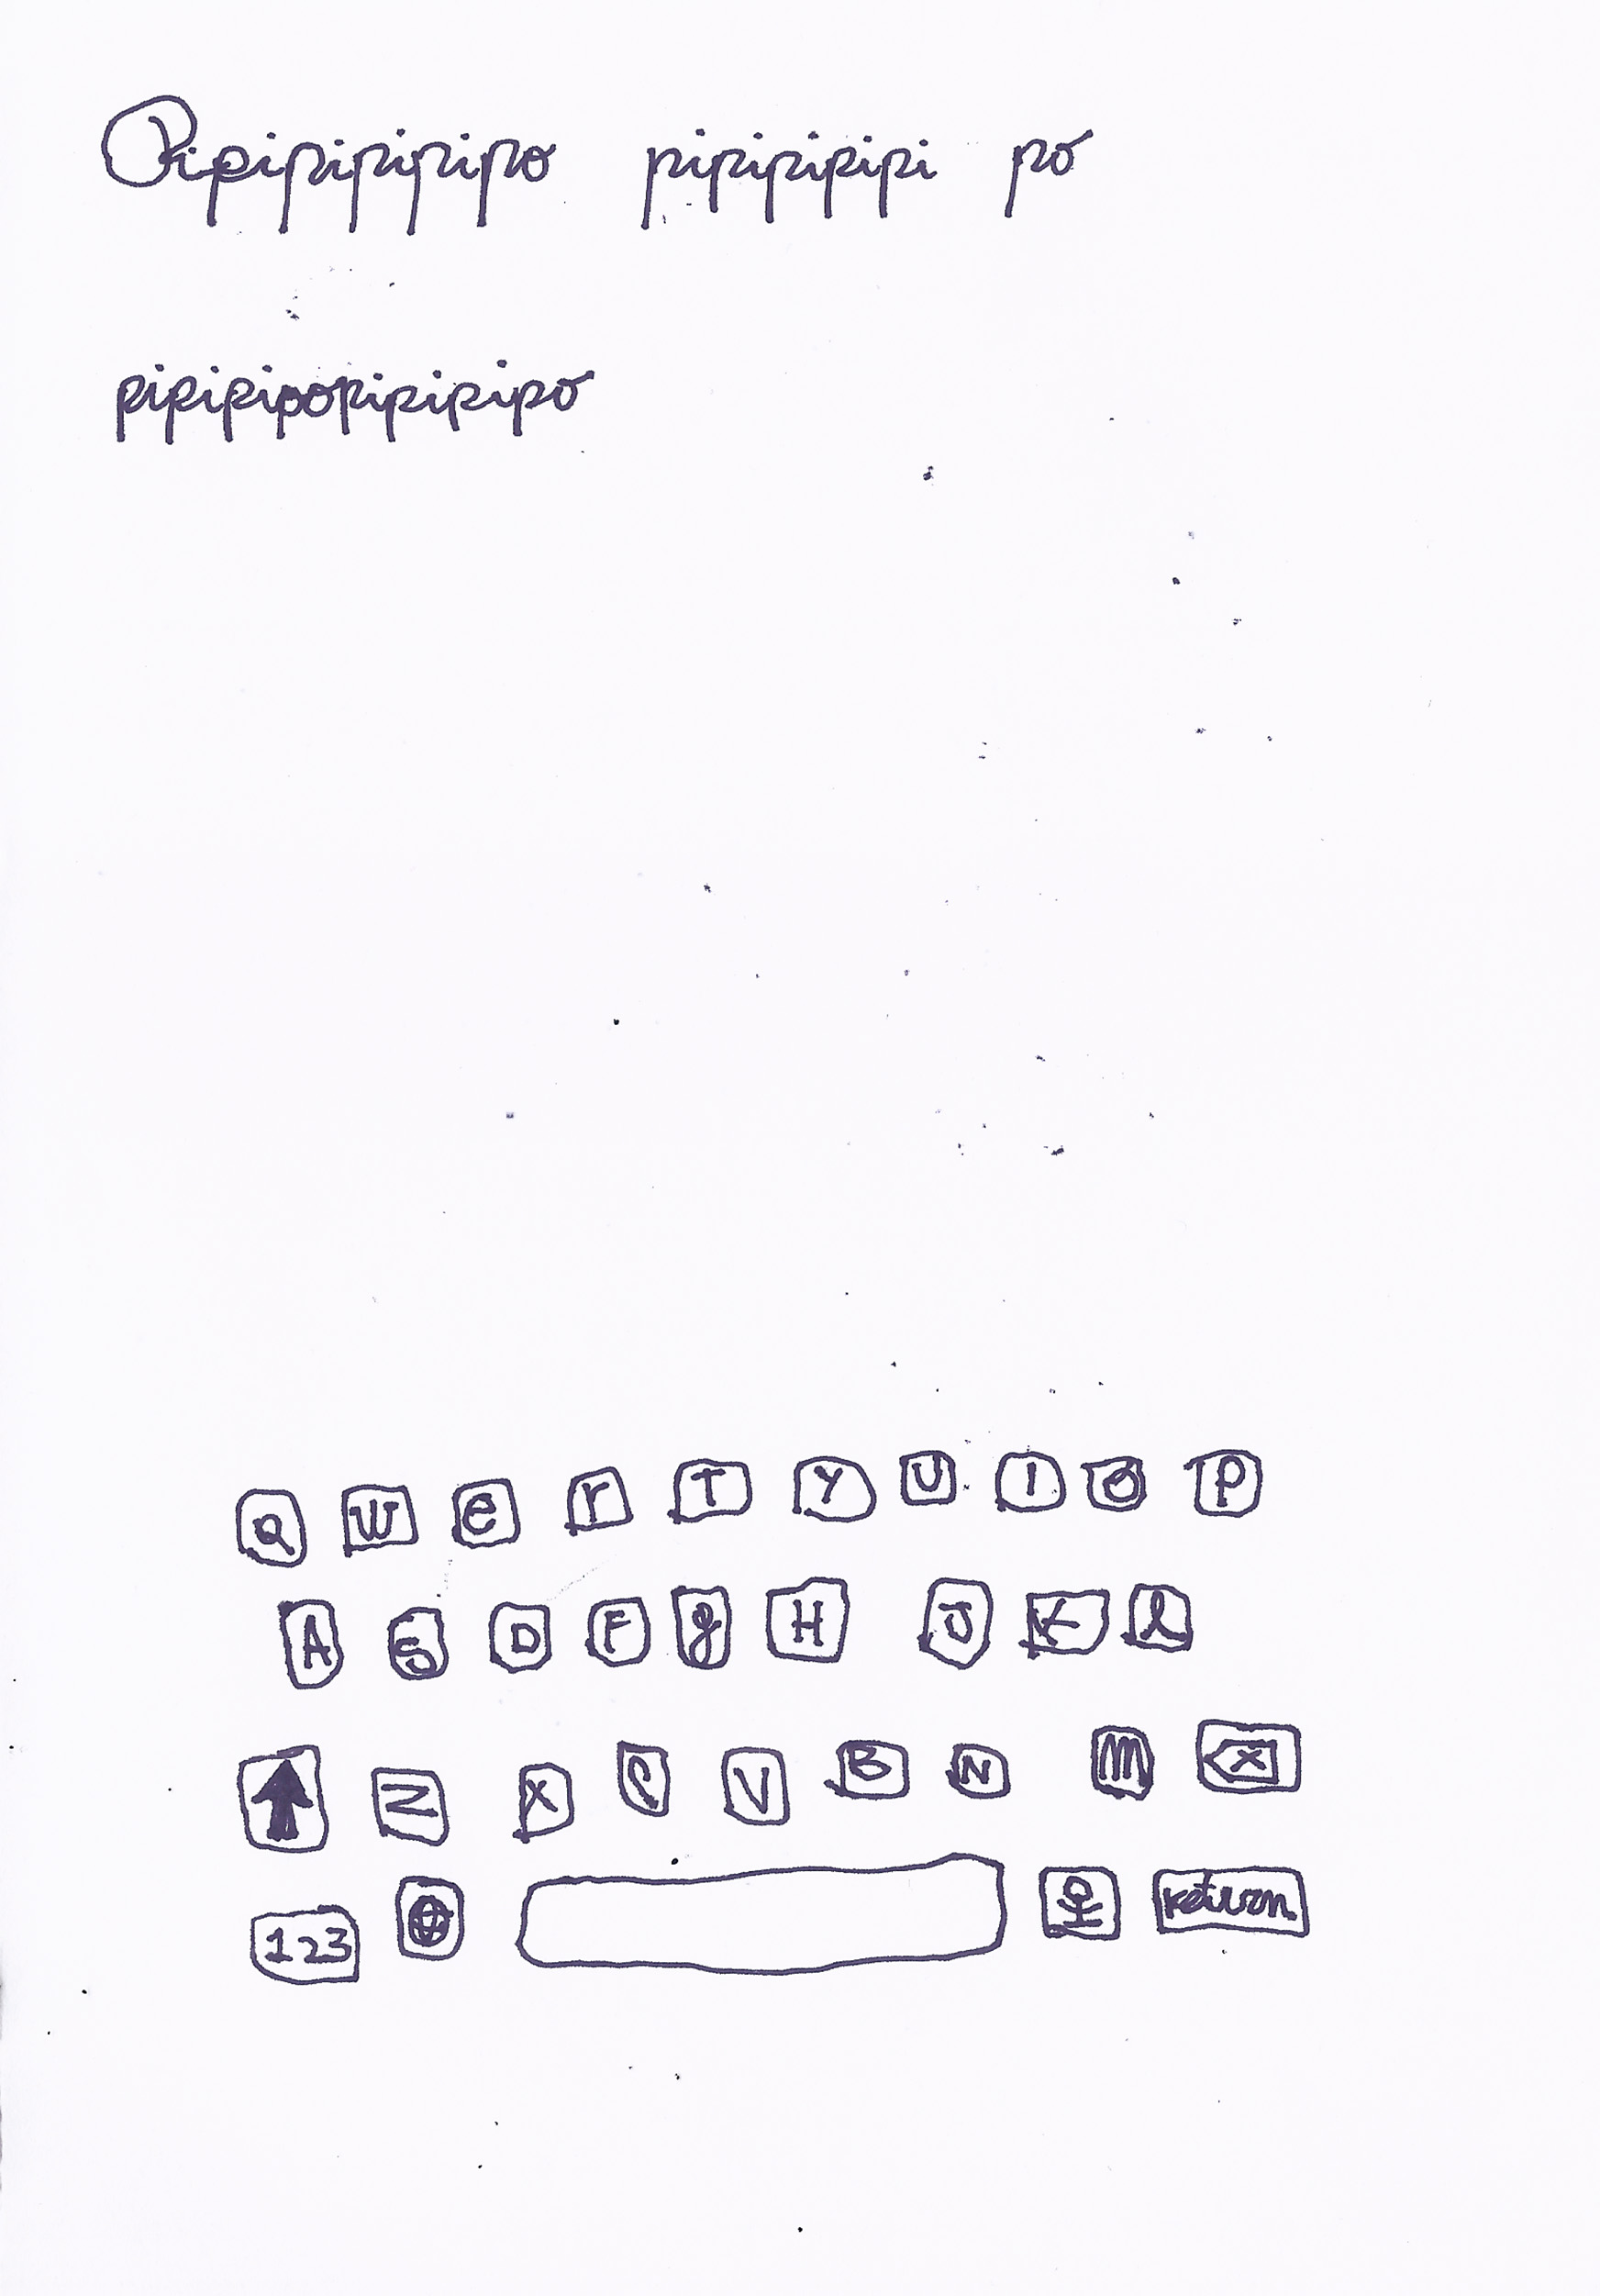 Pipipipipipo pipipipipi po
pipipipoopipipipo
Q W e r T Y U I O P
A S D F g H J K l
Z X C V B N M
123 return